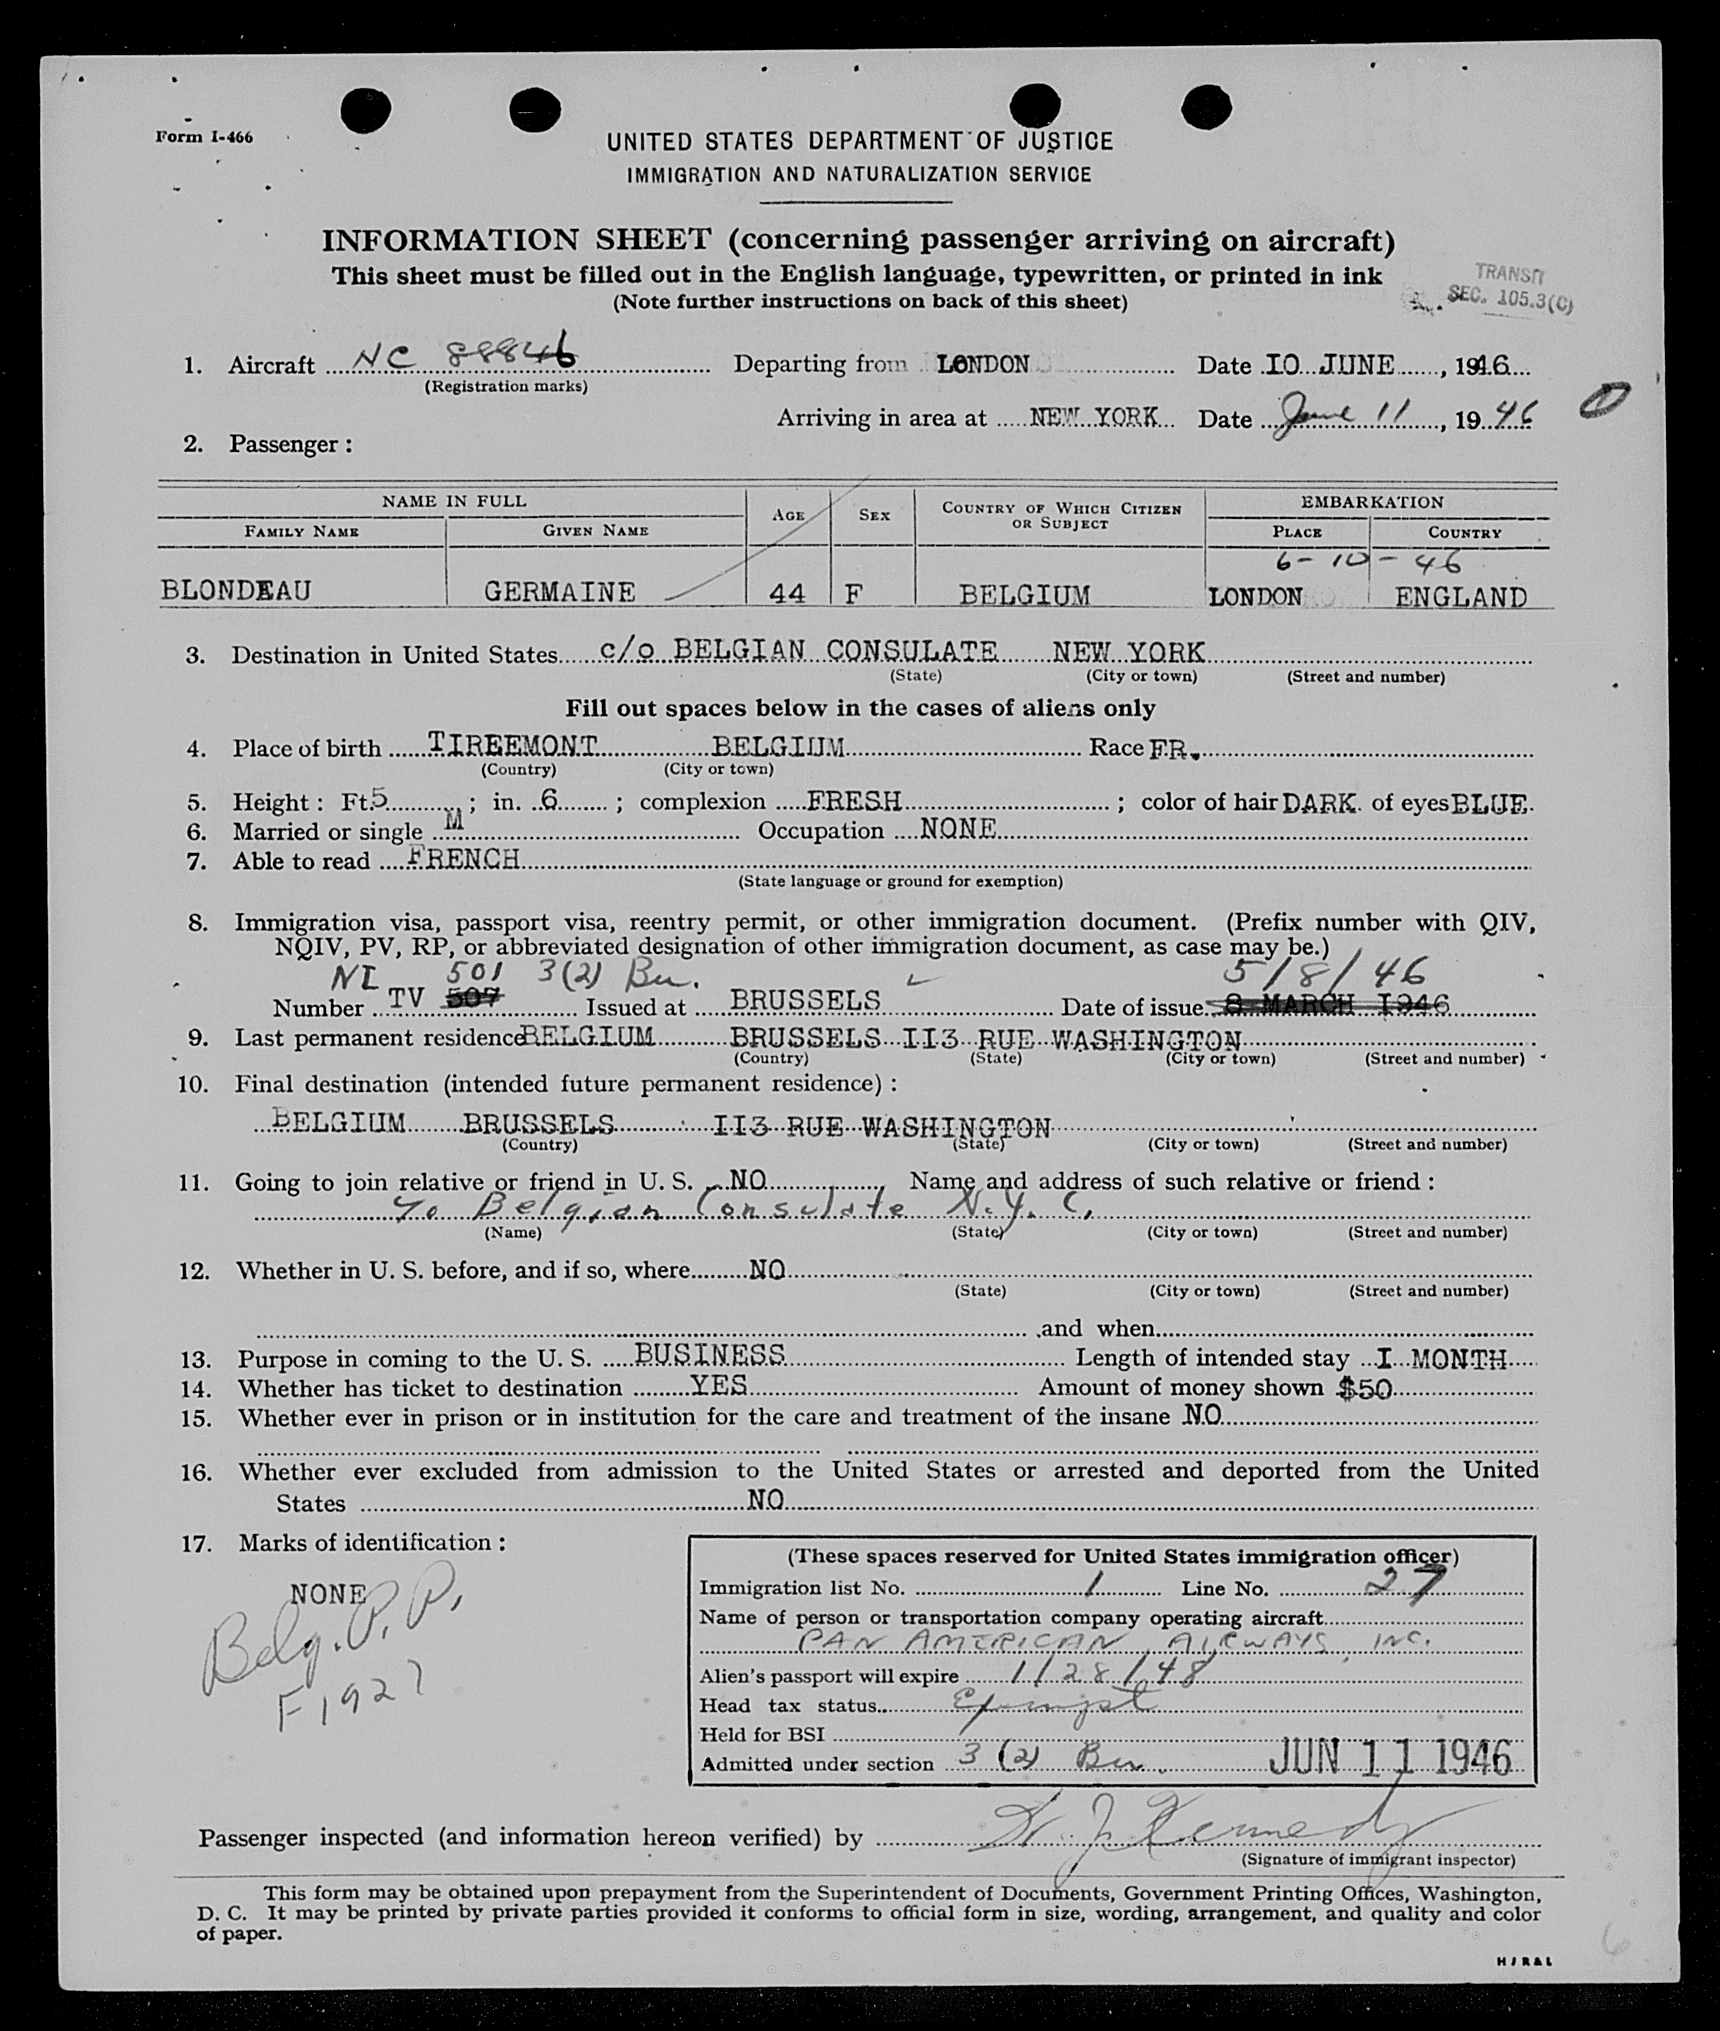 Form I-466
UNITED STATES DEPARTMENT OF JUSTICE
IMMIGRATION AND NATURALIZATION SERVICE
INFORMATION SHEET (concerning passenger arriving on aircraft)
This sheet must be filled out in the English language, typewritten, or printed in ink
(Note further instructions on back of this sheet)
TRANSIT
SEC. 105.3(C)
1. Aircraft NC 88846 Departing from LONDON Date IO JUNE, 1946
(Registration marks)
Arriving in area at NEW YORK Date June 11, 1946
2. Passenger:
NAME IN FULL AGE SEX COUNTRY OF WHICH CITIZEN OR SUBJECT EMBARKATION
FAMILY NAME GIVEN NAME PLACE COUNTRY
6-10-46
BLONDEAU GERMAINE 44 F BELGIUM LONDON ENGLAND
3. Destination in United States c/o BELGIAN CONSULATE NEW YORK
(State) (City or town) (Street and number)
Fill out spaces below in the cases of aliens only
4. Place of birth TIREEMONT BELGIUM Race FR.
(Country) (City or town)
5. Height: Ft. 5; in. 6; complexion FRESH; color of hair DARK of eyes BLUE
6. Married or single M Occupation NONE
7. Able to read FRENCH
(State language or ground for exemption)
8. Immigration visa, passport visa, reentry permit, or other immigration document. (Prefix number with QIV,
NQIV, PV, RP, or abbreviated designation of other immigration document, as case may be.)
NI 501 3(2) Bu. 5/8/46
Number TV 507 Issued at BRUSSELS Date of issue 8 MARCH I946
9. Last permanent residence BELGIUM BRUSSELS II3 RUE WASHINGTON
(Country) (State) (City or town) (Street and number)
10. Final destination (intended future permanent residence):
BELGIUM BRUSSELS II3 RUE WASHINGTON
(Country) (State) (City or town) (Street and number)
11. Going to join relative or friend in U. S. NO Name and address of such relative or friend:
℅ Belgian Consulate N.Y.C.
(Name) (State) (City or town) (Street and number)
12. Whether in U. S. before, and if so, where NO
(State) (City or town) (Street and number)
, and when
13. Purpose in coming to the U. S. BUSINESS Length of intended stay I MONTH
14. Whether has ticket to destination YES Amount of money shown $50
15. Whether ever in prison or in institution for the care and treatment of the insane NO
16. Whether ever excluded from admission to the United States or arrested and deported from the United
States NO
17. Marks of identification:
NONE
Belg. P.P.
F1927
(These spaces reserved for United States immigration officer)
Immigration list No. 1 Line No. 27
Name of person or transportation company operating aircraft
PAN AMERICAN AIRWAYS, INC.
Alien's passport will expire 1/28/48
Head tax status Exempt
Held for BSI
Admitted under section 3 (2) Bu. JUN 11 1946
Passenger inspected (and information hereon verified) by W. J. Kennedy
(Signature of immigrant inspector)
This form may be obtained upon prepayment from the Superintendent of Documents, Government Printing Offices, Washington,
D. C. It may be printed by private parties provided it conforms to official form in size, wording, arrangement, and quality and color
of paper.
6